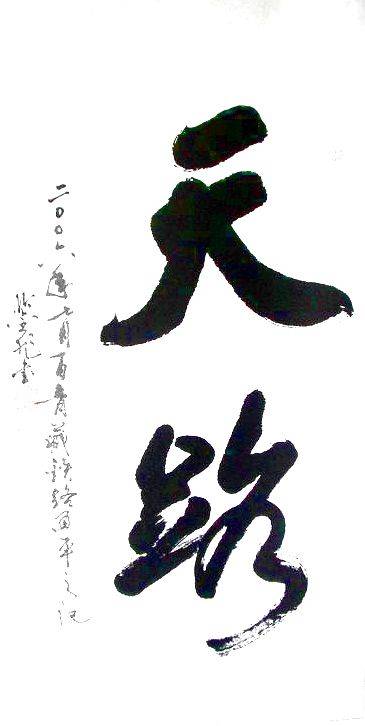 天路
二〇〇六年七月一日青藏铁路通车之记
书